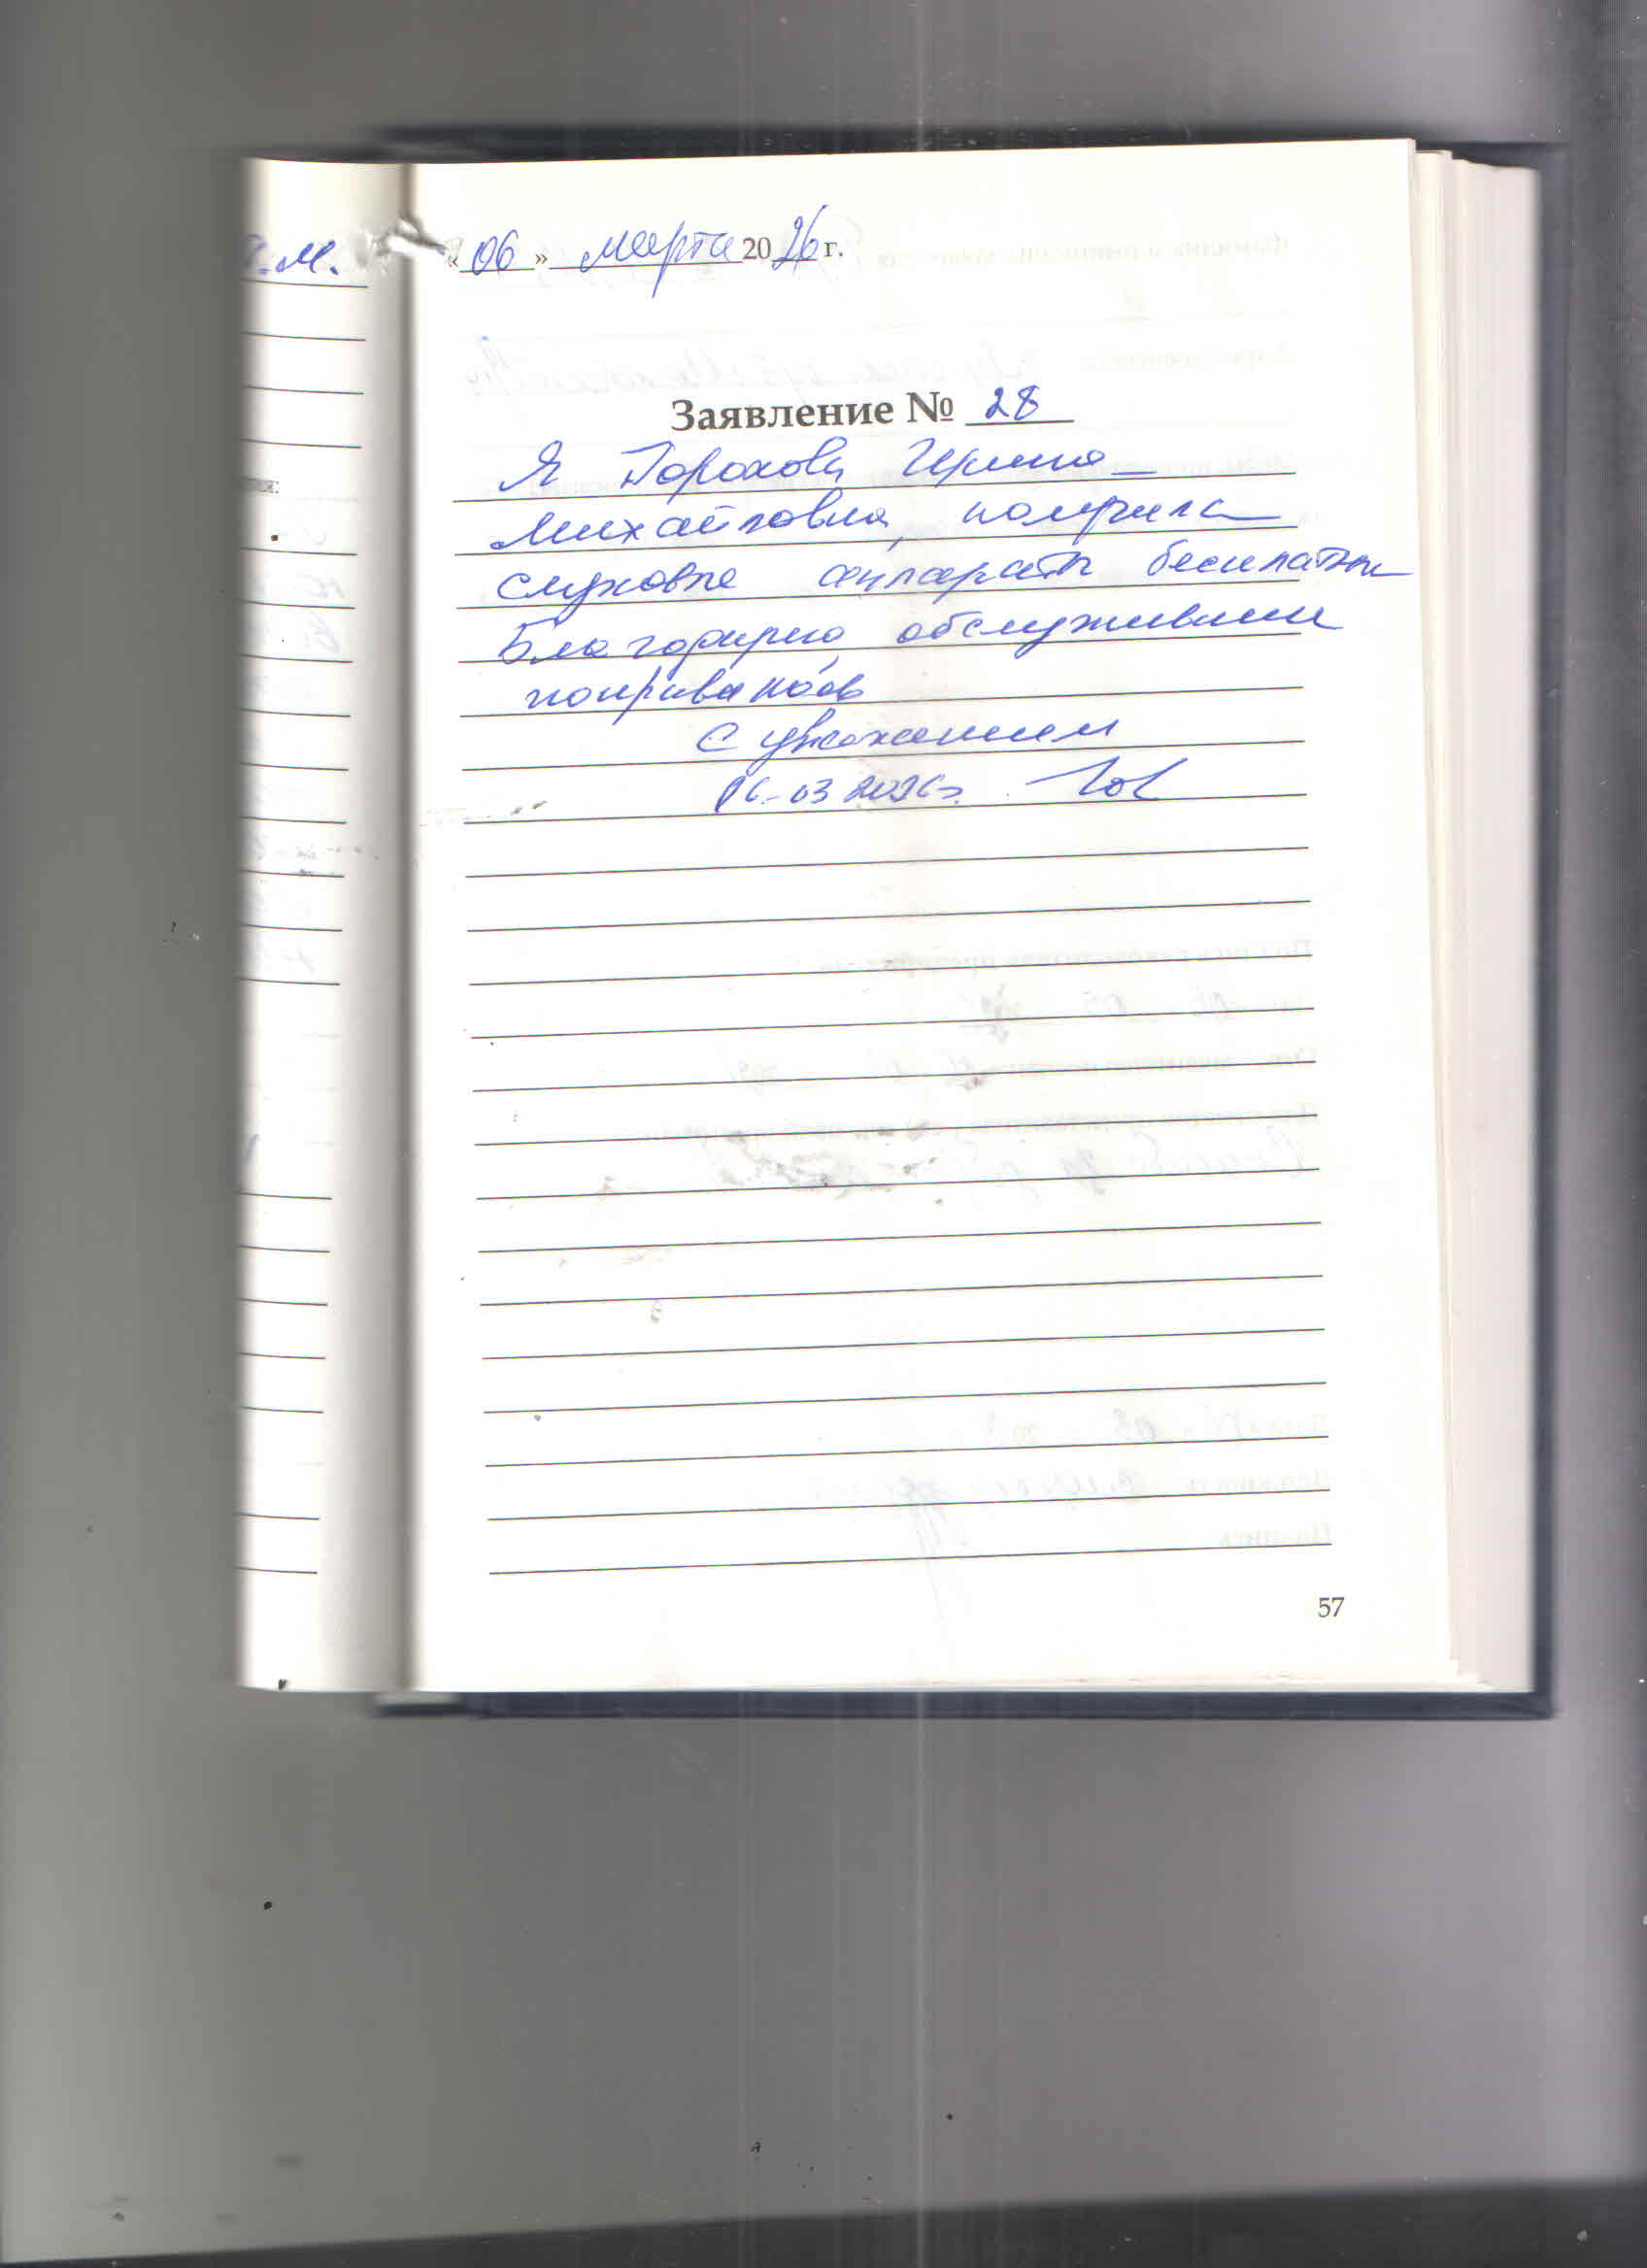 «06» марта 2026 г.
Заявление № 28
Я Горохова Ирина
Михайловна, получила
слуховые аппараты бесплатно
Благодарю, обслуживание
понравилось
С уважением
06.03 2026г.
57